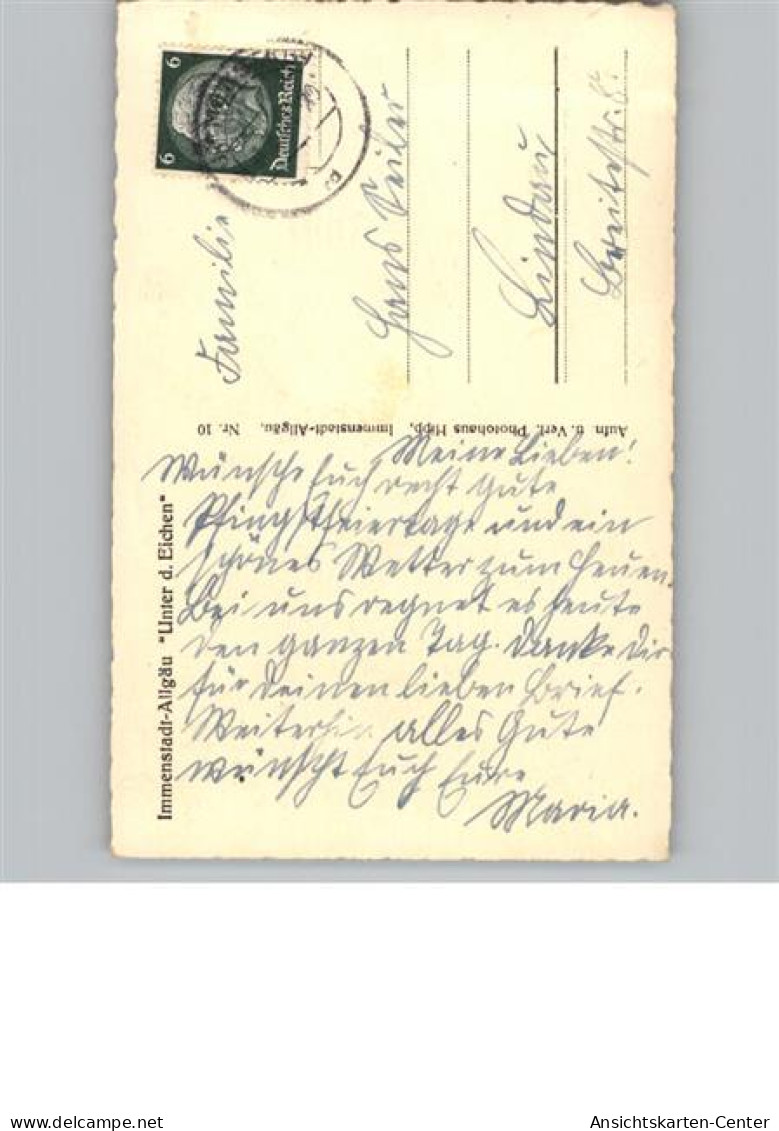 6 6
Deutsches Reich
Familie
Hans Seiler
Lindau
Breitestr. 8
Aufn. u. Verl. Photohaus Hipp, Immenstadt-Allgäu, Nr. 10
Immenstadt-Allgäu "Unter d. Eichen"
Meine Lieben!
Wünsche Euch recht gute
Pfingstfeiertage und ein
schönes Wetter zum Heuen.
Bei uns regnet es heute
den ganzen Tag. Danke Dir
für Deinen lieben Brief.
Weiterhin alles Gute
wünscht Euch Eure
Maria.
delcampe.net
Ansichtskarten-Center